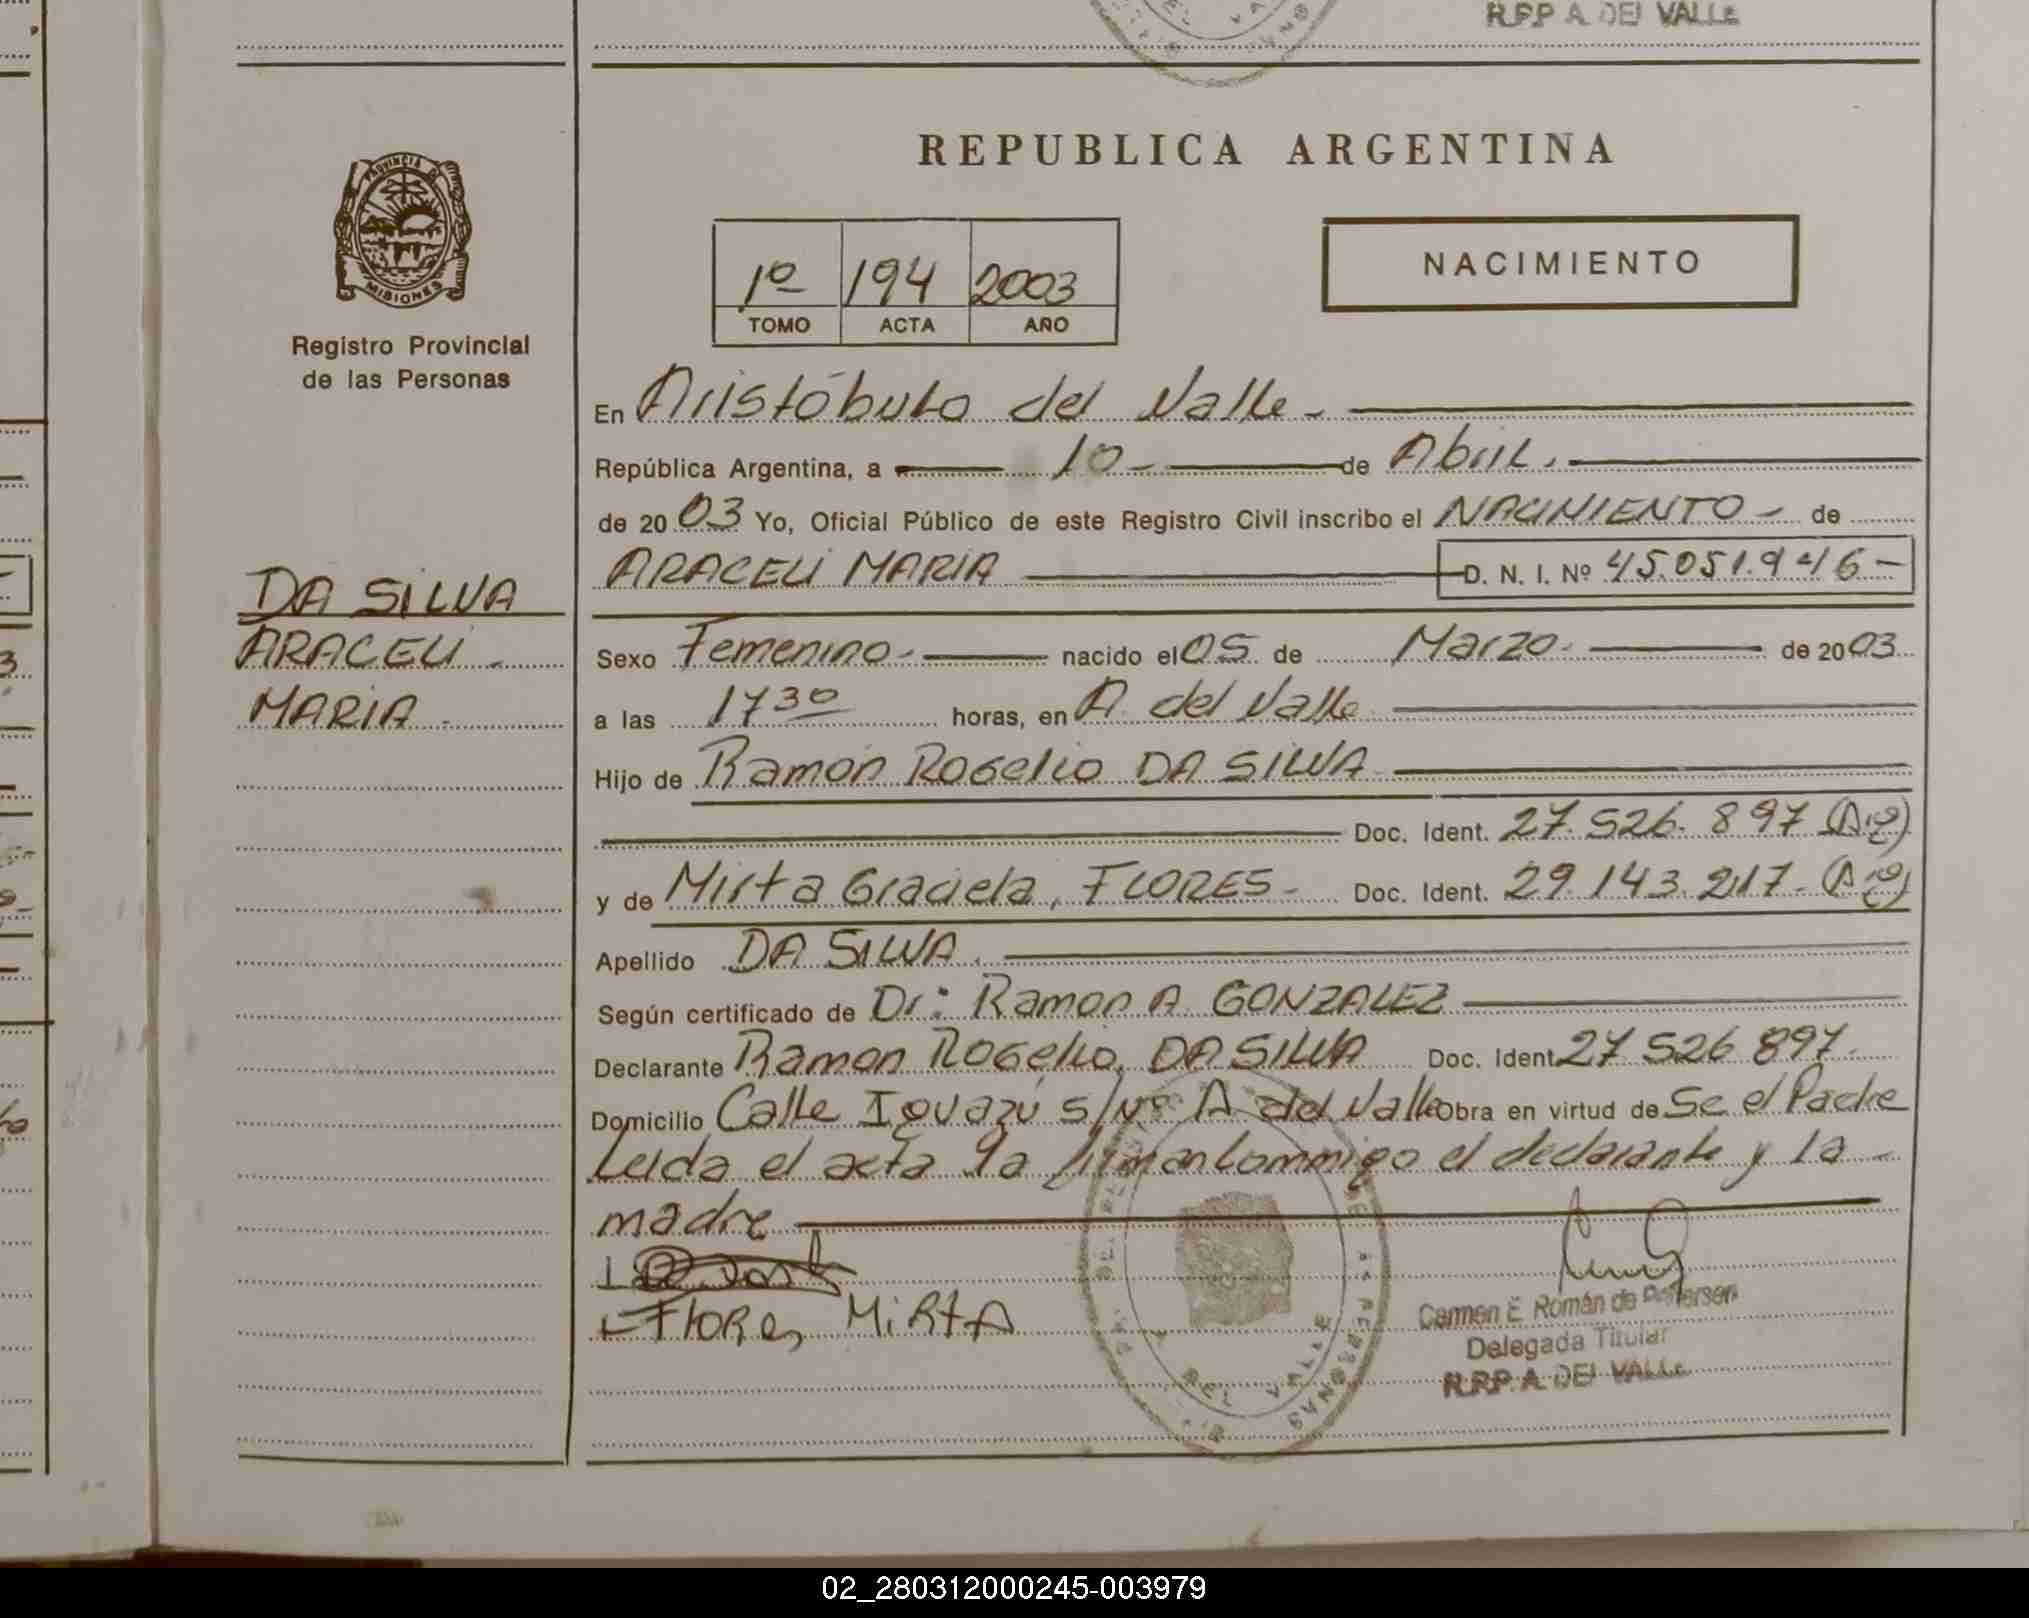 R.P.P A. DEL VALLE
REPUBLICA ARGENTINA
PROVINCIA DE
MISIONES
Registro Provincial
de las Personas
1º 194 2003
TOMO ACTA AÑO
NACIMIENTO
En Aristóbulo del Valle -
República Argentina, a 10 - de Abril.
de 2003 Yo, Oficial Público de este Registro Civil inscribo el NACIMIENTO - de
ARACELI MARIA D. N. I. Nº 45.051.946-
DA SILVA
ARACELI -
MARIA -
Sexo Femenino - nacido el 05 de Marzo - de 2003
a las 17 30 horas, en A. del Valle
Hijo de Ramón Rogelio DA SILVA
Doc. Ident. 27.526.897 (Arg)
y de Mirta Graciela, FLORES - Doc. Ident. 29.143.217 - (Arg)
Apellido DA SILVA.
Según certificado de Dr: Ramon A. GONZALEZ
Declarante Ramon Rogelio, DA SILVA Doc. Ident. 27 526 897 -
Domicilio Calle Iguazú s/nº A del Valle Obra en virtud de Se el Padre
Leida el acta la firman conmmigo el declarante y la -
madre
Flores MiRtA
Carmen E. Román de Pettersen
Delegada Titular
R.P.P. A. DEL VALLE
02_280312000245-003979